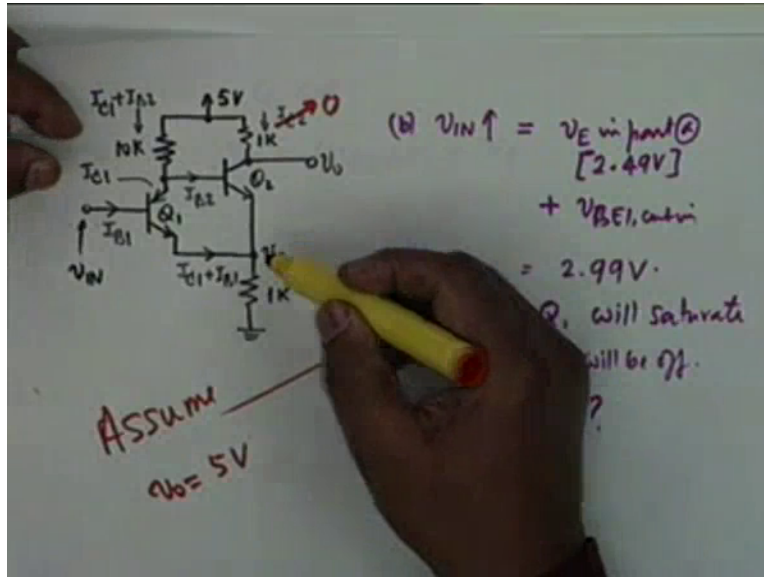 I_C1+I_B2
5V
I_C2
0
10K
1K
I_C1
I_B2
Q_2
v_o
Q_1
I_B1
v_IN
I_C1+I_B1
1K
Assume
v_o = 5V
(b) v_IN ↑ = v_E in part (a)
[2.49V]
+ v_BE1, cutin
= 2.99V.
Q_1 will saturate
will be off.
?